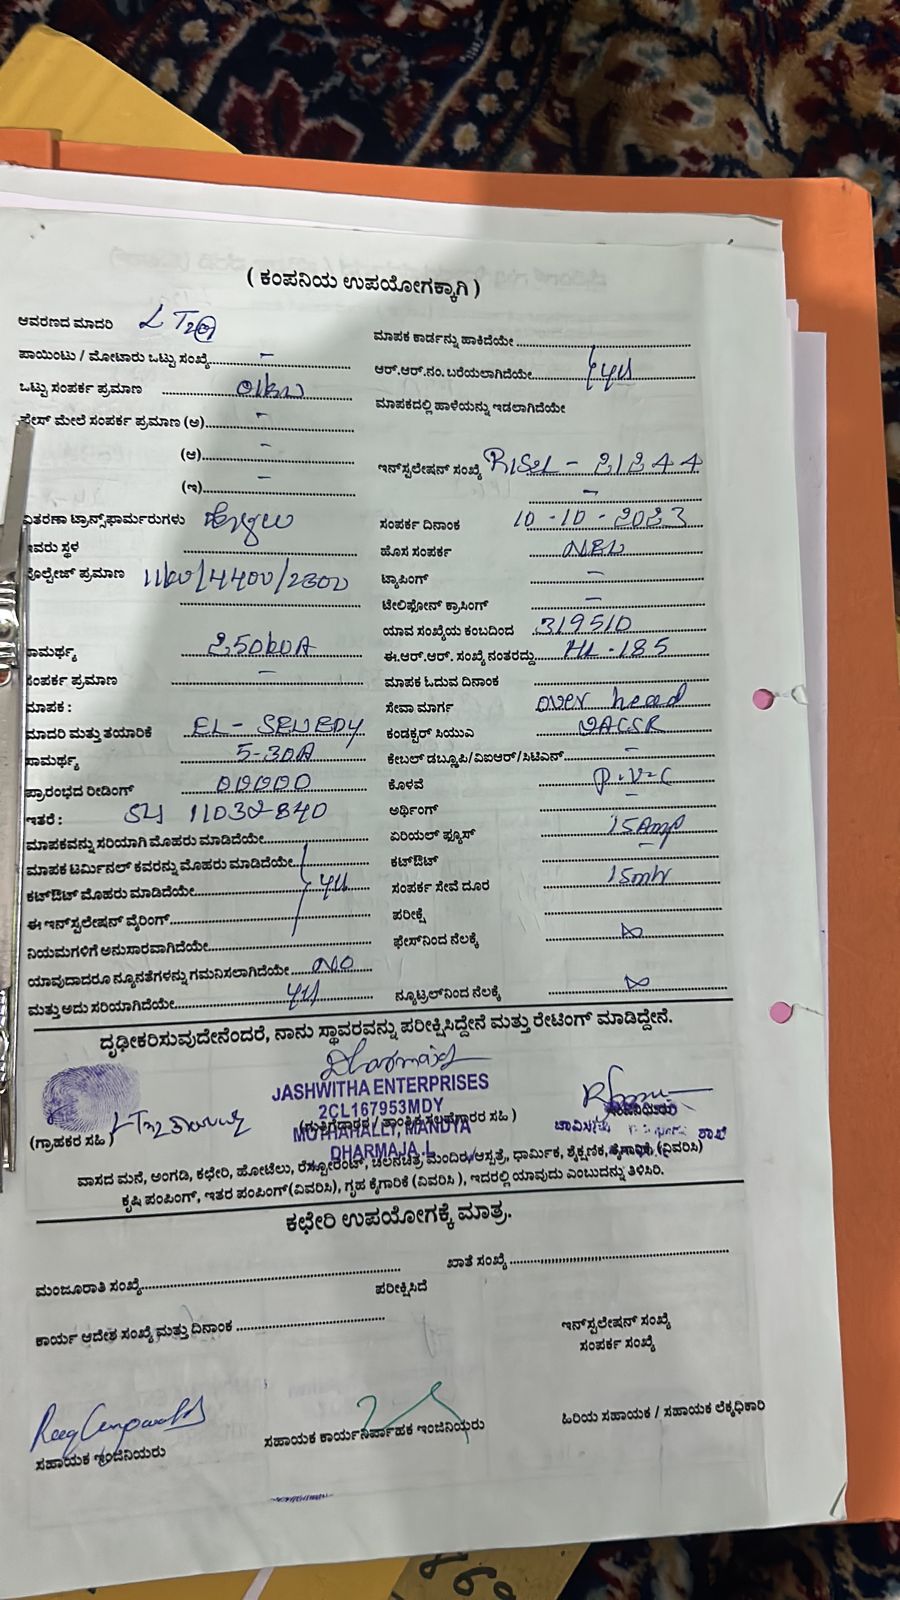 ( ಕಂಪನಿಯ ಉಪಯೋಗಕ್ಕಾಗಿ )
ಆವರಣದ ಮಾದರಿ LT2
ಪಾಯಿಂಟು / ಮೋಟಾರು ಒಟ್ಟು ಸಂಖ್ಯೆ -
ಒಟ್ಟು ಸಂಪರ್ಕ ಪ್ರಮಾಣ
ಫೇಸ್ ಮೇಲೆ ಸಂಪರ್ಕ ಪ್ರಮಾಣ (ಅ) -
(ಆ) -
(ಇ) -
ವಿತರಣಾ ಟ್ರಾನ್ಸ್‌ಫಾರ್ಮರುಗಳು
ಇವರು ಸ್ಥಳ
ವೋಲ್ಟೇಜ್ ಪ್ರಮಾಣ
ಸಾಮರ್ಥ್ಯ
ಸಂಪರ್ಕ ಪ್ರಮಾಣ -
ಮಾಪಕ :
ಮಾದರಿ ಮತ್ತು ತಯಾರಿಕೆ
ಸಾಮರ್ಥ್ಯ 5-30A
ಪ್ರಾರಂಭದ ರೀಡಿಂಗ್ 00000
ಇತರೆ :
ಮಾಪಕವನ್ನು ಸರಿಯಾಗಿ ಮೊಹರು ಮಾಡಿದೆಯೇ
ಮಾಪಕ ಟರ್ಮಿನಲ್ ಕವರನ್ನು ಮೊಹರು ಮಾಡಿದೆಯೇ
ಕಟ್‌ಔಟ್ ಮೊಹರು ಮಾಡಿದೆಯೇ
ಈ ಇನ್‌ಸ್ಟಲೇಷನ್ ವೈರಿಂಗ್
ನಿಯಮಗಳಿಗೆ ಅನುಸಾರವಾಗಿದೆಯೇ
ಯಾವುದಾದರೂ ನ್ಯೂನತೆಗಳನ್ನು ಗಮನಿಸಲಾಗಿದೆಯೇ NO
ಮತ್ತು ಅದು ಸರಿಯಾಗಿದೆಯೇ yes
ಮಾಪಕ ಕಾರ್ಡನ್ನು ಹಾಕಿದೆಯೇ
ಆರ್.ಆರ್.ನಂ. ಬರೆಯಲಾಗಿದೆಯೇ yes
ಮಾಪಕದಲ್ಲಿ ಹಾಳೆಯನ್ನು ಇಡಲಾಗಿದೆಯೇ
ಇನ್‌ಸ್ಟಲೇಷನ್ ಸಂಖ್ಯೆ
-
ಸಂಪರ್ಕ ದಿನಾಂಕ 10-10-2023
ಹೊಸ ಸಂಪರ್ಕ NEW
ಟ್ಯಾಪಿಂಗ್ -
ಟೆಲಿಫೋನ್ ಕ್ರಾಸಿಂಗ್ -
ಯಾವ ಸಂಖ್ಯೆಯ ಕಂಬದಿಂದ 319510
ಈ.ಆರ್.ಆರ್. ಸಂಖ್ಯೆ ನಂತರದ್ದು HL-185
ಮಾಪಕ ಓದುವ ದಿನಾಂಕ
ಸೇವಾ ಮಾರ್ಗ over head
ಕಂಡಕ್ಟರ್ ಸಿಯುಎ
ಕೇಬಲ್ ಡಬ್ಲ್ಯೂಪಿ/ವಿಐಆರ್/ಸಿಟಿಎನ್ -
ಕೊಳವೆ P.V.C
ಅರ್ಥಿಂಗ್ -
ಏರಿಯಲ್ ಫ್ಯೂಸ್ 15Amp
ಕಟ್‌ಔಟ್ -
ಸಂಪರ್ಕ ಸೇವೆ ದೂರ 15mtr
ಪರೀಕ್ಷೆ
ಫೇಸ್‌ನಿಂದ ನೆಲಕ್ಕೆ
ನ್ಯೂಟ್ರಲ್‌ನಿಂದ ನೆಲಕ್ಕೆ
ದೃಢೀಕರಿಸುವುದೇನೆಂದರೆ, ನಾನು ಸ್ಥಾವರವನ್ನು ಪರೀಕ್ಷಿಸಿದ್ದೇನೆ ಮತ್ತು ರೇಟಿಂಗ್ ಮಾಡಿದ್ದೇನೆ.
JASHWITHA ENTERPRISES
2CL167953MDY
MUTHAHALLY, MANDYA
DHARMAJA .L
(ಗ್ರಾಹಕರ ಸಹಿ)
ವಾಸದ ಮನೆ, ಅಂಗಡಿ, ಕಛೇರಿ, ಹೋಟೆಲು, ರೆಸ್ಟೋರೆಂಟ್, ಚಲನಚಿತ್ರ ಮಂದಿರ, ಆಸ್ಪತ್ರೆ, ಧಾರ್ಮಿಕ, ಶೈಕ್ಷಣಿಕ, ಕೈಗಾರಿಕೆ (ವಿವರಿಸಿ)
ಕೃಷಿ ಪಂಪಿಂಗ್, ಇತರ ಪಂಪಿಂಗ್ (ವಿವರಿಸಿ), ಗೃಹ ಕೈಗಾರಿಕೆ (ವಿವರಿಸಿ ), ಇದರಲ್ಲಿ ಯಾವುದು ಎಂಬುದನ್ನು ತಿಳಿಸಿರಿ.
ಕಛೇರಿ ಉಪಯೋಗಕ್ಕೆ ಮಾತ್ರ.
ಮಂಜೂರಾತಿ ಸಂಖ್ಯೆ
ಖಾತೆ ಸಂಖ್ಯೆ
ಪರೀಕ್ಷಿಸಿದೆ
ಕಾರ್ಯ ಆದೇಶ ಸಂಖ್ಯೆ ಮತ್ತು ದಿನಾಂಕ
ಇನ್‌ಸ್ಟಲೇಷನ್ ಸಂಖ್ಯೆ
ಸಂಪರ್ಕ ಸಂಖ್ಯೆ
ಸಹಾಯಕ ಇಂಜಿನಿಯರು
ಸಹಾಯಕ ಕಾರ್ಯನಿರ್ವಾಹಕ ಇಂಜಿನಿಯರು
ಹಿರಿಯ ಸಹಾಯಕ / ಸಹಾಯಕ ಲೆಕ್ಕಧಿಕಾರಿ